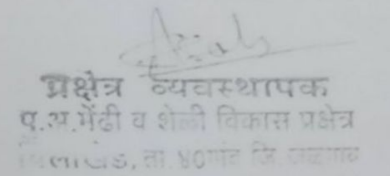 प्रक्षेत्र व्यवस्थापक
पु.अ.मेंढी व शेळी विकास प्रक्षेत्र
ता. जि.